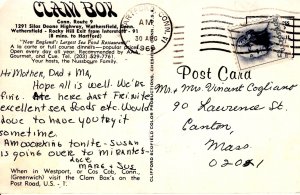 CLAM BOX
Conn. Route 9
1291 Silas Deane Highway, Wethersfield, Conn.
Wethersfield - Rocky Hill Exit from Interstate - 91
(8 mins. to Hartford)
"New England's Largest Sea Food Restaurants"
A la carte or full course dinners - popular prices
Open every day of year. Recommended by AAA
Gourmet, and Cue. Tel: (203) 529-7761.
Your hosts, the Nussbaum Family
Hi Mother, Dad & Ma,
Hope all is well. We're
fine. Ate here last Fri nite
excellent sea foods etc. Would
love to have you try it
sometime.
Am working tonite - Susan
is going over to Mirantes
Love
Marg & Sue
When in Westport, or Cos Cob, Conn.,
(Greenwich) visit the Clam Box's on the
Post Road, U.S. - 1.
AM
30 AUG
1969
CONN
Post Card
Mr. & Mrs. Vincent Cogliano
90 Lawrence St.
Canton,
Mass.
02021